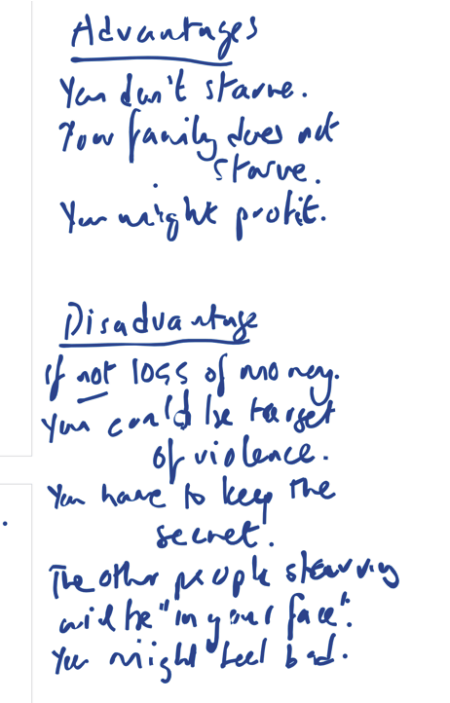 Advantages
You don't starve.
Your family does not
starve.
You might profit.
Disadvantage
if not loss of money.
You could be target
of violence.
You have to keep the
secret.
The other people starving
will be "in your face".
You might feel bad.